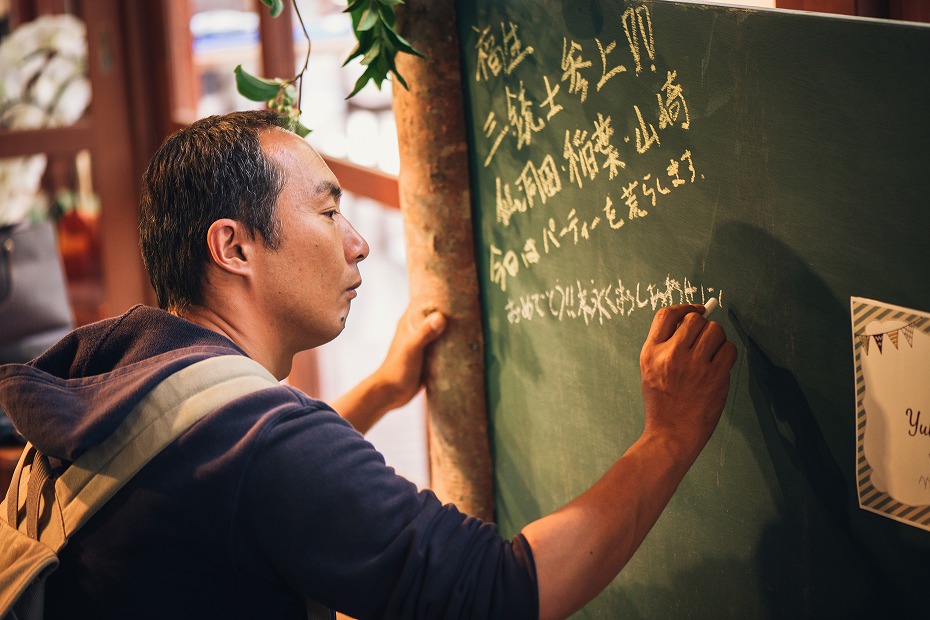 福生
三銃士 参上!!!
仙洞田・稲葉・山崎
今日はパーティーを荒らします.
おめでとう!!末永くおしあわせに
Yu